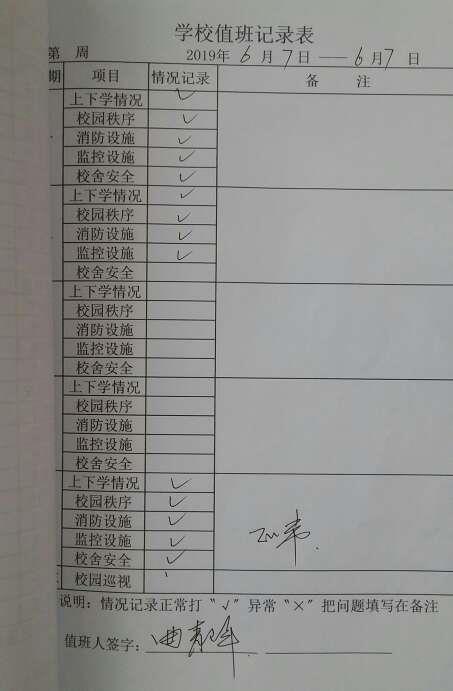 学校值班记录表
第 周 2019年 6 月 7 日 —— 6 月 7 日
期 项目 情况记录 备 注
上下学情况 ✓
校园秩序 ✓
消防设施 ✓
监控设施 ✓
校舍安全 ✓
上下学情况 ✓
校园秩序 ✓
消防设施 ✓
监控设施 ✓
校舍安全
上下学情况
校园秩序
消防设施
监控设施
校舍安全
上下学情况
校园秩序
消防设施
监控设施
校舍安全
上下学情况 ✓
校园秩序 ✓
消防设施 ✓
监控设施 ✓
校舍安全 ✓
校园巡视
说明：情况记录正常打“√”异常“×”把问题填写在备注
值班人签字：曲